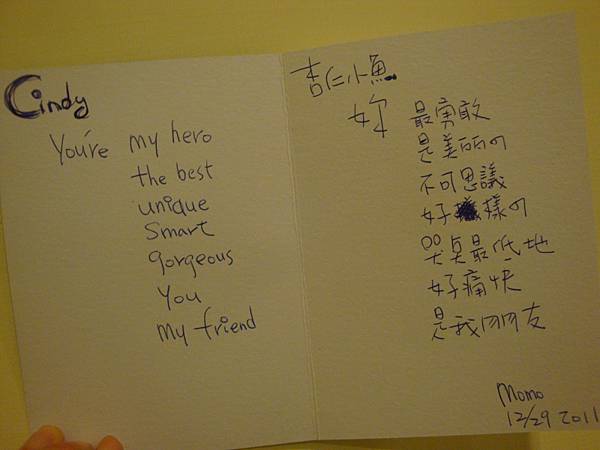 Cindy
You're my hero
the best
unique
Smart
gorgeous
You
my friend
杏仁小魚
妳 最勇敢
是美丽の
不可思議
好樣の
哭奌最低地
好痛快
是我朋友
Momo
12/29 2011